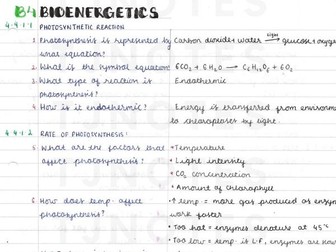 B4 BIOENERGETICS
4.4.1.1 PHOTOSYNTHETIC REACTION
1 Photosynthesis is represented by what equation? Carbon dioxide + water light → glucose + oxy
2. What is the symbol equation 6CO2 + 6H2O → C6H12O6 + 6O2
3 What type of reaction is photosynthesis? Endothermic
4 How is it endothermic? Energy is transferred from environme
to chloroplasts by light.
4.4.1.2 RATE OF PHOTOSYNTHESIS:
5 What are the factors that affect photosynthesis? • Temperature
• Light intensity
• CO2 concentration
• Amount of chlorophyll
6 How does temp. affect photosynthesis? • ↑ temp = more gas produced as enzym
work faster
• Too hot = enzymes denature at 45°
• Too low = temp. is L.F, enzymes are